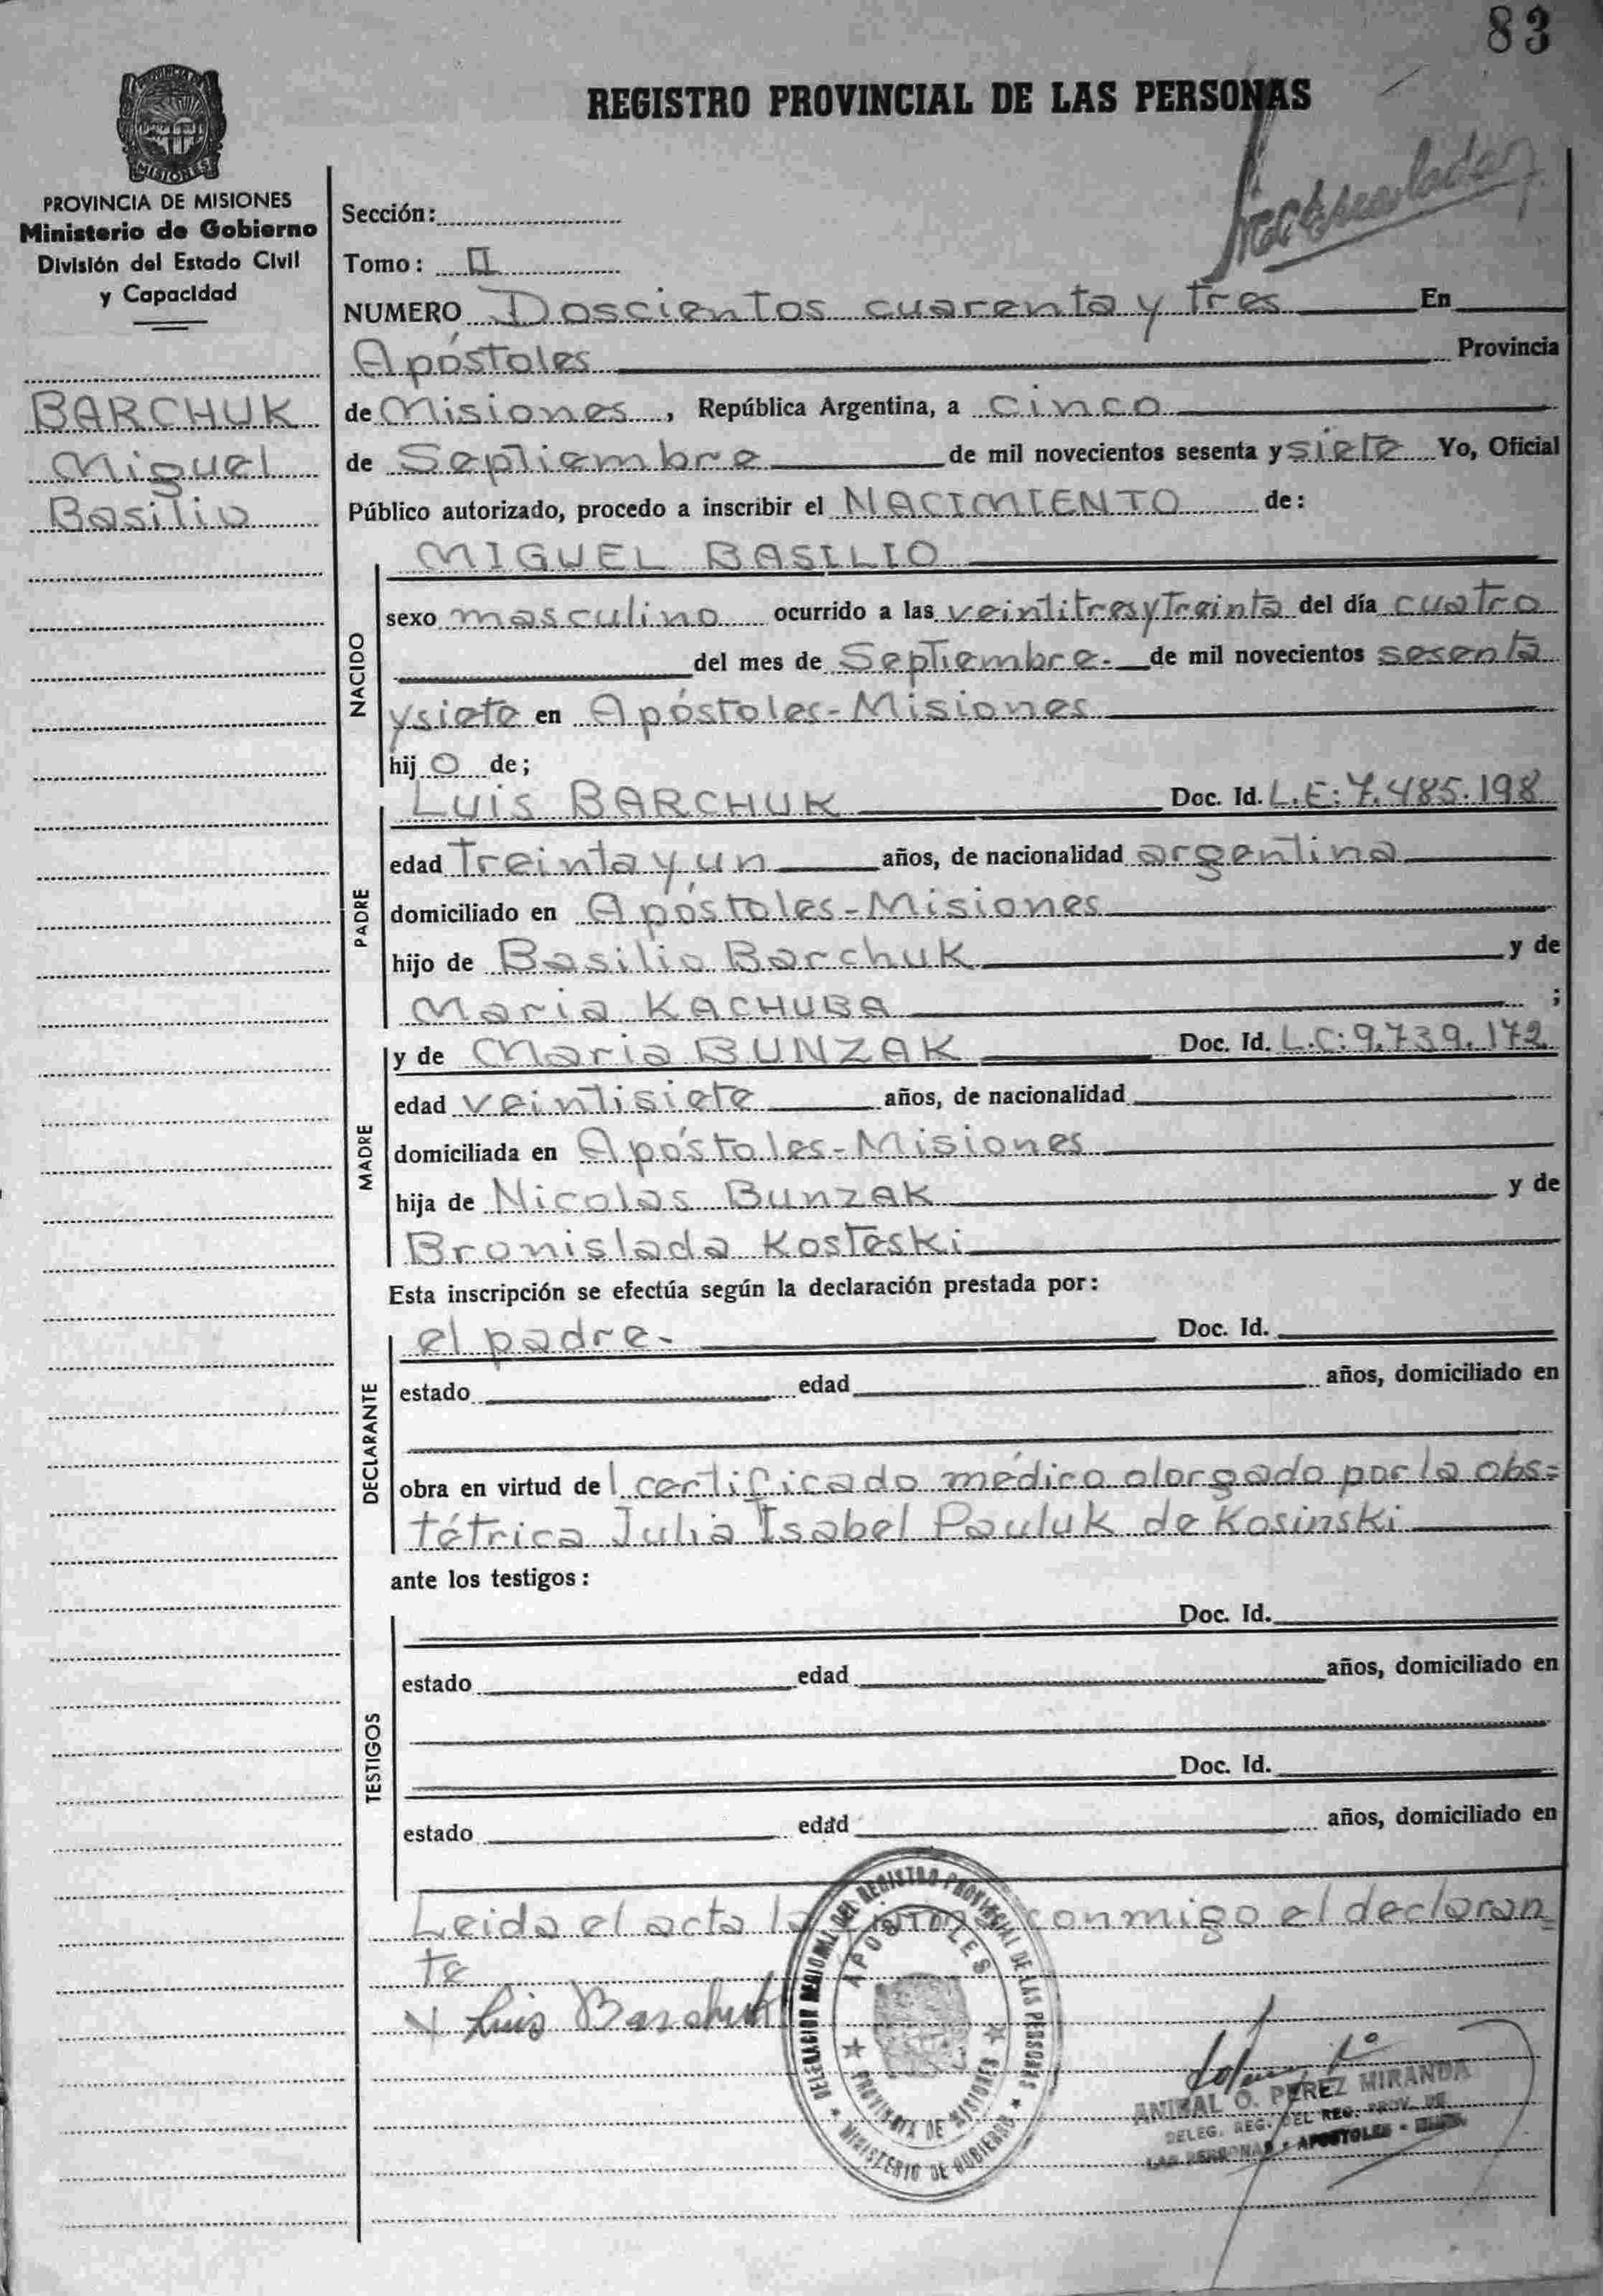 83
REGISTRO PROVINCIAL DE LAS PERSONAS
MISIONES
PROVINCIA DE MISIONES
Ministerio de Gobierno
División del Estado Civil
y Capacidad
BARCHUK
Miguel
Basilio
Sección:
Tomo: II
NUMERO Doscientos cuarenta y tres En
Apóstoles Provincia
de Misiones, República Argentina, a cinco
de Septiembre de mil novecientos sesenta y siete Yo, Oficial
Público autorizado, procedo a inscribir el NACIMIENTO de:
NACIDO
MIGUEL BASILIO
sexo masculino ocurrido a las veintitres y treinta del día cuatro
del mes de Septiembre.- de mil novecientos sesenta
y siete en Apóstoles-Misiones
hij o de;
PADRE
Luis BARCHUK Doc. Id. L.E: 7.485.198
edad Treinta y un años, de nacionalidad argentina
domiciliado en Apóstoles-Misiones
hijo de Basilio Barchuk y de
Maria KACHUBA ;
MADRE
y de Maria BUNZAK Doc. Id. L.C: 9.739.172
edad veintisiete años, de nacionalidad
domiciliada en Apóstoles-Misiones
hija de Nicolas Bunzak y de
Bronislada Kosteski
Esta inscripción se efectúa según la declaración prestada por:
DECLARANTE
el padre.- Doc. Id.
estado edad años, domiciliado en
obra en virtud de l certificado médico otorgado por la obs=
tétrica Julia Isabel Pauluk de Kosinski
ante los testigos:
TESTIGOS
Doc. Id.
estado edad años, domiciliado en
Doc. Id.
estado edad años, domiciliado en
Leida el acta la conmigo el declaran_
te
x Luis Barchuk
DELEGACION REGIONAL DEL REGISTRO PROVINCIAL DE LAS PERSONAS
APOSTOLES
PROVINCIA DE MISIONES
MINISTERIO DE GOBIERNO
ANIBAL O. PEREZ MIRANDA
DELEG. REG. DEL REG. PROV. DE
LAS PERSONAS - APOSTOLES -